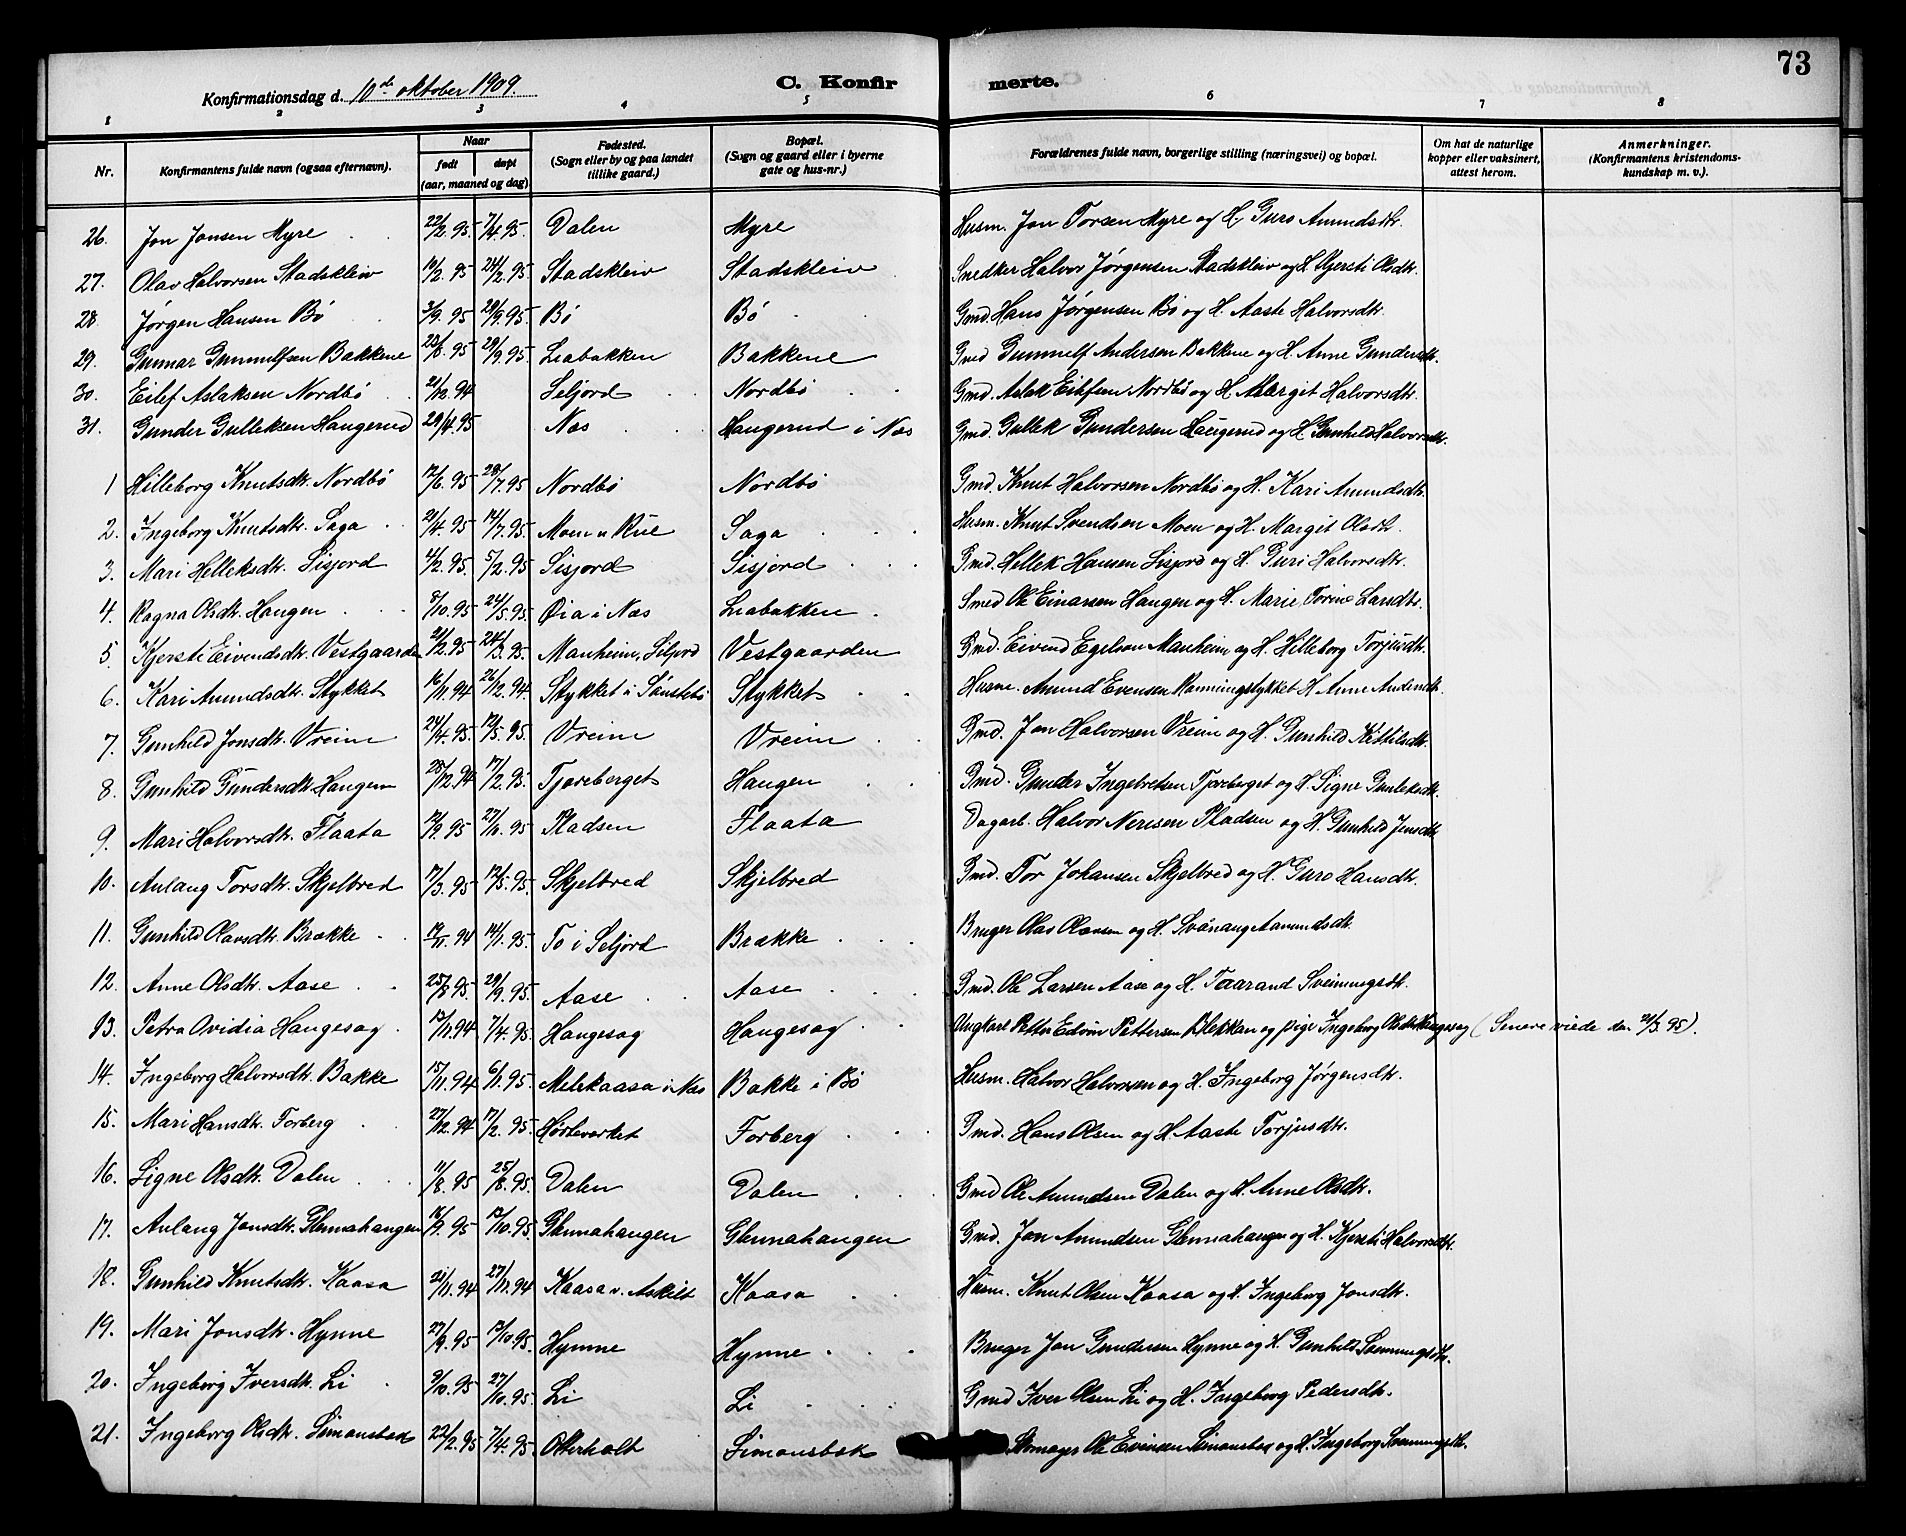 73
Konfirmationsdag d. 10de oktober 1909. C. Konfirmerte.
1 2 3 4 5 6 7 8
Nr. Konfirmantens fulde navn (ogsaa efternavn). Naar født døpt (aar, maaned og dag) Fødested. (Sogn eller by og paa landet tillike gaard.) Bopæl. (Sogn og gaard eller i byerne gate og hus-nr.) Forældrenes fulde navn, borgerlige stilling (næringsvei) og bopæl. Om hat de naturlige kopper eller vaksinert, attest herom. Anmerkninger. (Konfirmantens kristendoms-kundskap m. v.).
26. Jon Jonsen Myre 22/2.95. 7/4.95. Dalen Myre Husm. Jon Torsen Myre og H. Guro Amundsdtr.
27. Olav Halvorsen Stadskleiv 10/2.95 24/2.95. Stadskleiv Stadskleiv Snedker Halvor Jørgensen Stadskleiv og H. Kjersti Olsdtr.
28. Jørgen Hansen Bø 3/9.95 29/9.95. Bø Bø Gmd. Hans Jørgensen Bø og H. Aaste Halvorsdtr.
29. Gunnar Gunnulfsen Bakkene 23/8.95 29/9.95. Liabakken Bakkene Gmd Gunnulf Andersen Bakkene og H. Anne Gundersdtr.
30. Eilef Aslaksen Nordbø 21/12.94 Seljord Nordbø Gmd. Aslak Eilefsen Nordbø og H. Margit Halvorsdtr.
31. Gunder Gulleksen Haugerud 20/4.95 Næs Haugerud i Næs Gmd. Gullek Gundersen Haugerud og H. Gunhild Halvorsdtr.
1 Hilleborg Knutsdtr. Nordbø 12/6.95 28/7.95 Nordbø Nordbø Gmd. Knut Halvorsen Nordbø og H. Kari Amundsdtr.
2. Ingeborg Knutsdtr. Saga 21/4.95 14/7.95 Moen u Rue Saga Husm. Knut Svendsen Moen og H. Margit Olsdtr.
3. Mari Helleksdtr. Sisjord 4/2.95. 5/2.95 Sisjord Sisjord Gmd. Hellek Hansen Sisjord og H. Guri Halvorsdtr.
4. Ragna Olsdtr. Haugen 8/10.95 24/5.95. Øia i Næs Liabakken Smed Ole Einarsen Haugen og H. Marie Torine Landtr.
5. Kjersti Eivendsdtr. Vestgaarden 21/2.95 24/3.95. Manheim, Seljord Vestgaarden Gmd. Eivend Egelsen Manheim og H. Hilleborg Torjusdtr.
6. Kari Amundsdtr. Stykket 16/11.94 26/12.94 Stykket u Sønstebø Stykket Husm. Amund Evensen Ranningstykket H. Anne Andersdtr.
7. Gunhild Jonsdtr. Vreim 24/4.95. 12/5.95. Vreim Vreim Gmd. Jon Halvorsen Vreim og H. Gunhild Kittilsdtr.
8. Gunhild Gundersdtr. Haugen 28/12.94 17/2.95. Tjoreberget Haugen Gmd. Gunder Ingebretsen Tjoreberget og H. Signe Gunleksdtr.
9. Mari Halvorsdtr. Flaata 12/9.95 27/10.95 Pladsen Flaata Dagarb. Halvor Nerisen Pladsen og H. Gunhild Jensdtr.
10. Aulaug Torsdtr. Skjelbred 17/3.95 12/5.95. Skjelbred Skjelbred Gmd. Tor Johansen Skjelbred og H. Guro Hansdtr.
11. Gunhild Olavsdtr. Brække 19/11.94 14/1.95. To i Seljord Brække Bruger Olav Olavsen og H. Svånaug Aamundsdtr.
12. Anne Olsdtr. Aase 25/8.95 29/9.95. Aase Aase Gmd. Ole Larsen Aase og H. Taarand Sveinungsdtr.
13. Petra Ovidia Haugesag 13/11.94 7/4.95. Haugesag Haugesag Ungkarl Petter Edvin Pettersen Blekkan og pige Ingeborg Olsdtr. Haugesag (Senere viede den 21/3.95).
14. Ingeborg Halvorsdtr. Bakke 15/11.94 6/1.95. Melekaasa i Næs Bakke i Bø Husm. Halvor Halvorsen og H. Ingeborg Jørgensdtr.
15. Mari Hansdtr. Forberg 27/12.94 17/2.95. Hørteverket Forberg Gmd. Hans Olsen og H. Aaste Torjusdtr.
16. Signe Olsdtr. Dalen 11/8.95 25/8.95. Dalen Dalen Gmd Ole Amundsen Dalen og H. Anne Olsdtr.
17. Aulaug Jonsdtr. Glennahaugen 16/9.95 13/10.95 Glennahaugen Glennahaugen Gmd. Jon Amundsen Glennahaugen og H. Kjersti Halvorsdtr.
18. Gunhild Knutsdtr. Kaasa 21/11.94 27/11.94 Kaasa v. Askilt Kaasa Husm. Knut Olsen Kaasa og H. Ingeborg Jonsdtr.
19. Mari Jonsdtr. Hynne 27/9.95 13/10.95. Hynne Hynne Bruger Jon Gundersen Hynne og H. Gunhild Sveinungsdtr.
20. Ingeborg Iversdtr. Li 9/10.95 27/10.95. Li Li Gmd Iver Olsen Li og H. Ingeborg Pedersdtr.
21. Ingeborg Olsdtr. Simonsbak 22/2.95 7/4.95. Otterholt Simonsbak Ole Evensen Simonsbak og H. Ingeborg Sveinungsdtr.